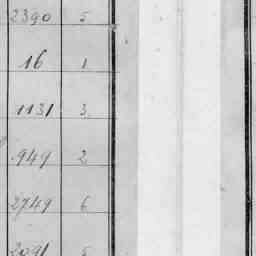 2390 5
16 1
1131 3
949 2
2749 6
2091 5